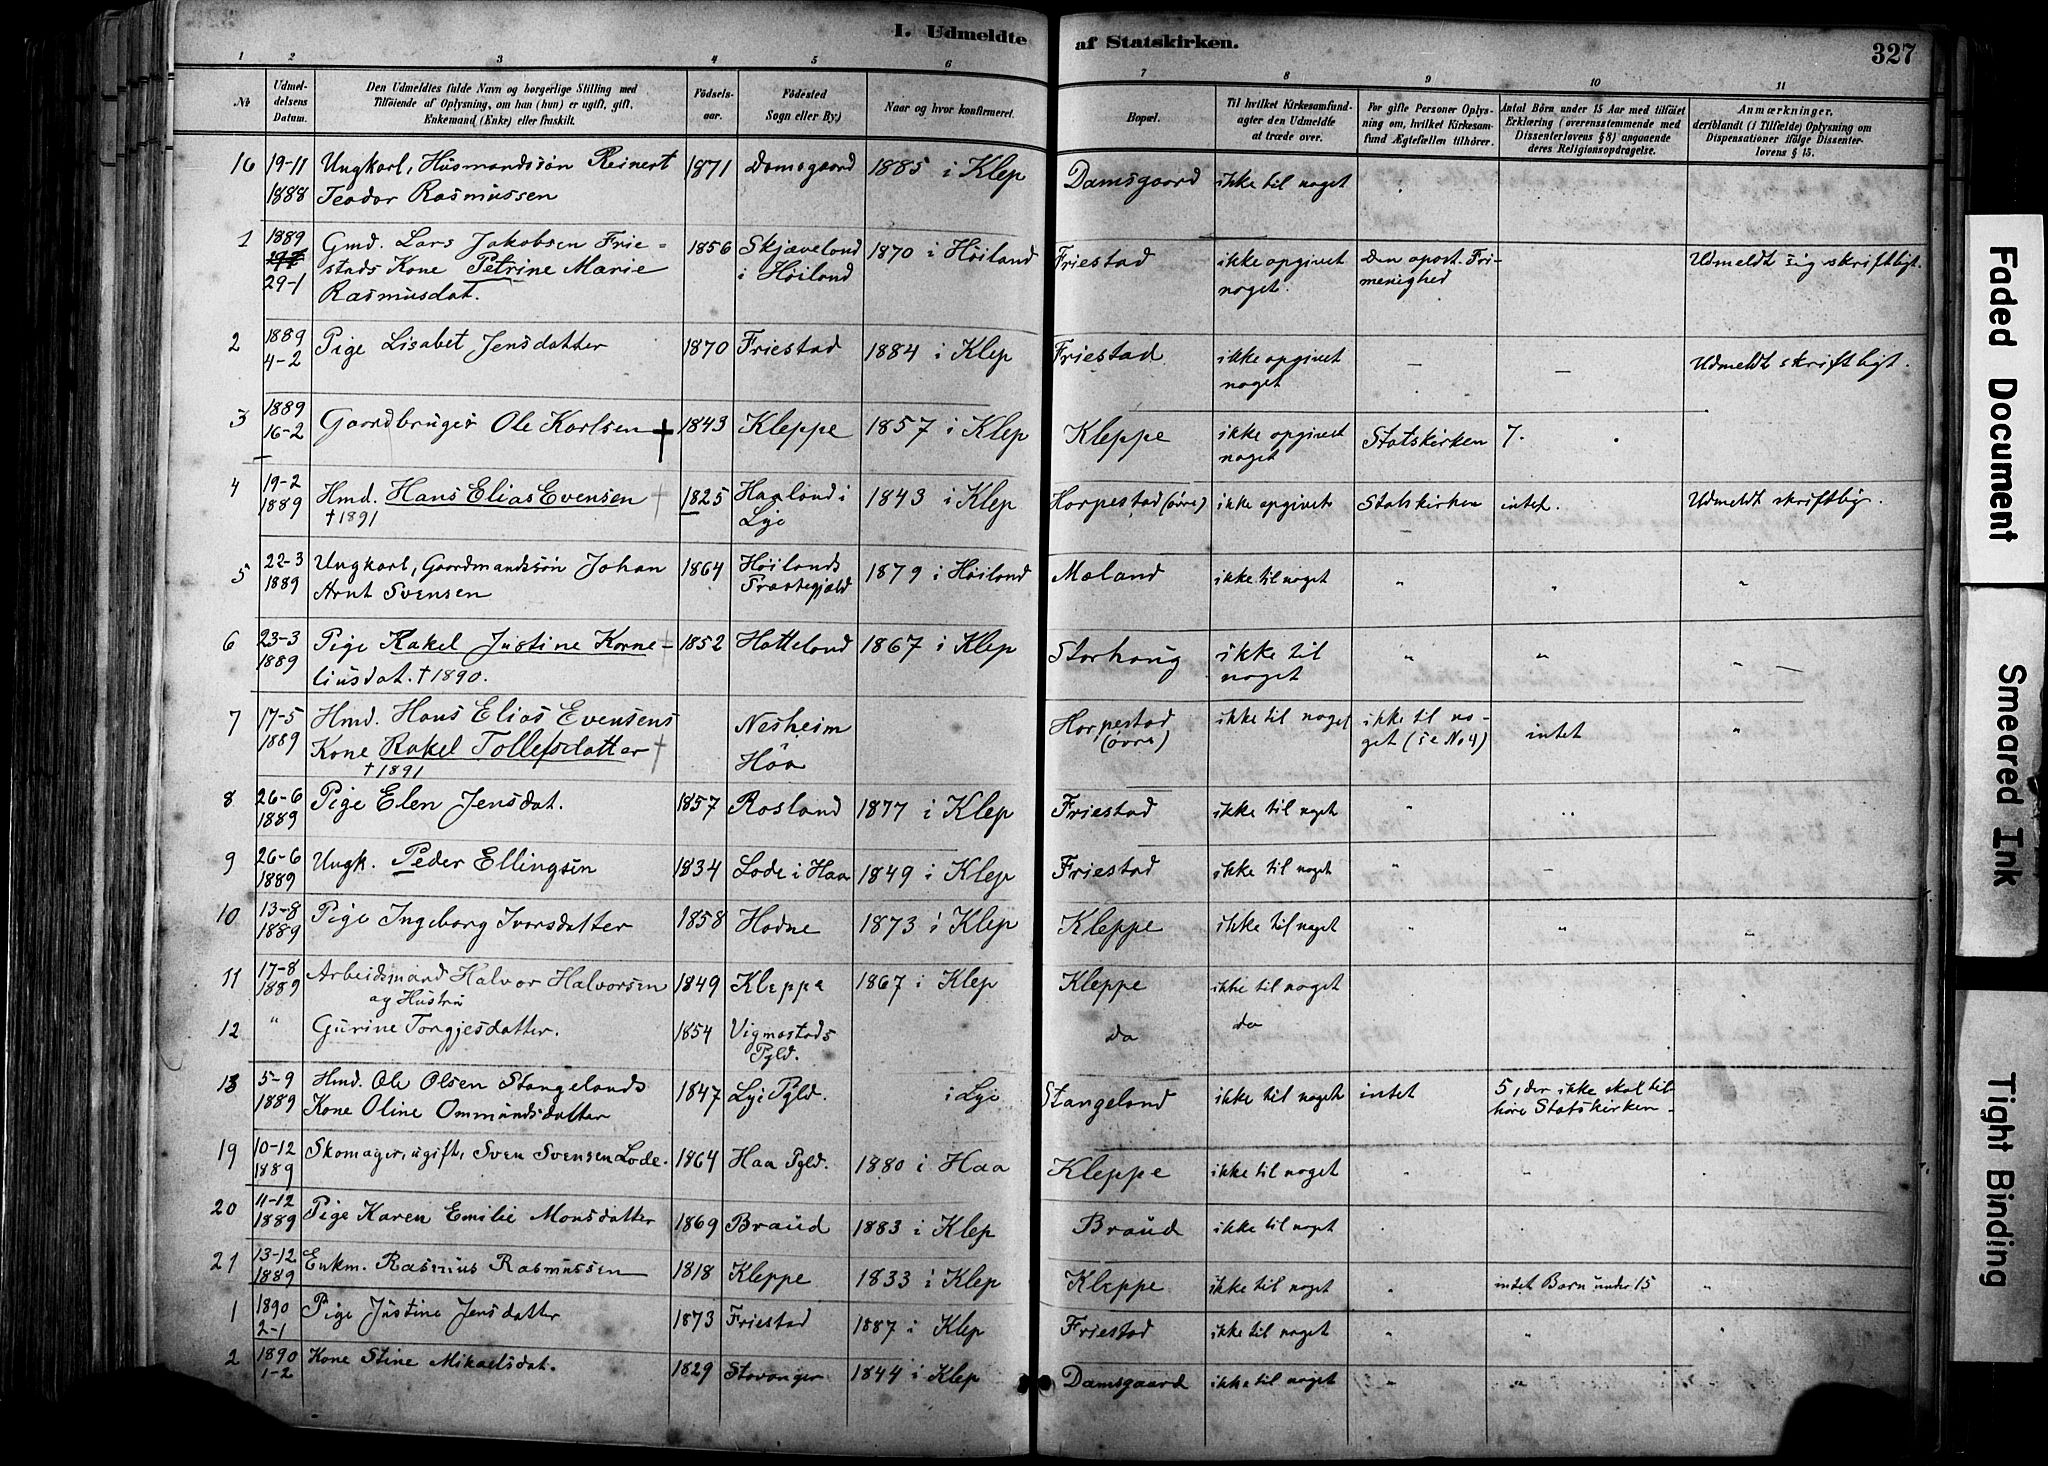 I. Udmeldte af Statskirken. 327
1 2 3 4 5 6 7 8 9 10 11
No
Udmeldelsens Datum.
Den Udmeldtes fulde Navn og borgerlige Stilling med Tilføiende af Oplysning, om han (hun) er ugift, gift, Enkemand (Enke) eller fraskilt.
Fødselsaar.
Fødested Sogn eller By)
Naar og hvor konfirmeret.
Bopæl.
Til hvilket Kirkesamfund agter den Udmeldte at træde over.
For gifte Personer Oplysning om, hvilket Kirkesamfund Ægtefællen tilhører.
Antal Børn under 15 Aar med tilføiet Erklæring (overensstemmende med Dissenterlovens § 8) angaaende deres Religionsopdragelse.
Anmærkninger, deriblandt (i Tilfælde) Oplysning om Dispensationer ifølge Dissenterlovens § 15.
16 19-11 Ungkarl, Husmandssøn Reinert 1871 Damsgaard 1885 i Klep Damsgaard ikke til noget "
1888 Teodor Rasmussen
1 1889 Gmd. Lars Jakobsen Frie- 1856 Skjæveland 1870 i Høiland Friestad ikke opgivet Den apost. Fri- Udmeldt sig skriftligt.
29-1 stads Kone Petrine Marie i Høiland noget. menighed
Rasmusdat.
2 1889 Pige Lisabet Jensdatter 1870 Friestad 1884 i Klep Friestad ikke opgivet — — Udmeldt skriftligt.
4-2 noget
3 1889 Gaardbruger Ole Karlsen † 1843 Kleppe 1857 i Klep Kleppe ikke opgivet Statskirken 7.
16-2 noget
4 19-2 Hmd. Hans Elias Evensen † 1825 Haaland i 1843 i Klep Horpestad (øvre) ikke opgivet Statskirken intet. Udmeldt skriftlig.
1889 † 1891 Lye
5 22-3 Ungkarl, Gaardmandssøn Johan 1864 Høilands 1879 i Høiland Maland ikke til noget " " "
1889 Arnt Svensen Præstegjæld
6 23-3 Pige Rakel Justine Korne- † 1852 Hatteland 1867 i Klep Storhaug ikke til " " " —
1889 liusdat. † 1890. noget
7 17-5 Hmd. Hans Elias Evensens Nesheim Horpestad ikke til noget ikke til no- intet "
1889 Kone Rakel Tollefsdatter † Haa (øvre) get (se No 4)
† 1891
8 26-6 Pige Elen Jensdat. 1857 Rosland 1877 i Klep Friestad ikke til noget " "
1889
9 26-6 Ungk. Peder Ellingsen 1834 Lode i Haa 1849 i Klep Friestad ikke til noget " "
1889
10 13-8 Pige Ingeborg Ivarsdatter 1858 Hodne 1873 i Klep Kleppe ikke til noget " " "
1889
11 17-8 Arbeidsmand Halvor Halvorsen 1849 Kleppe 1867 i Klep Kleppe ikke til noget
1889 og Hustru
12 " Gurine Torgjesdatter. 1854 Vigmostads Pgld. Do do
13 5-9 Hmd. Ole Olsen Stangelands 1847 Lye Pgld. i Lye Stangeland ikke til noget intet 5, der ikke skal til-
1889 Kone Oline Ommundsdatter høre Statskirken.
19 10-12 Skomager, ugift, Sven Svensen Lode. 1864 Haa Pgld. 1880 i Haa Kleppe ikke til noget "
1889
20 11-12 Pige Karen Emilie Monsdatter 1869 Braud 1883 i Klep Braud ikke til noget
1889
21 13-12 Enkm. Rasmus Rasmussen 1818 Kleppe 1833 i Klep Kleppe ikke til noget " intet Barn under 15 "
1889
1 1890 Pige Justine Jensdatter 1873 Friestad 1887 i Klep Friestad ikke til noget " "
2-1
2 1890 Kone Stine Mikaelsdat. 1829 Stavanger 1844 i Klep Damsgaard ikke til noget " " "
1-2
Faded Document
Smeared Ink
Tight Binding